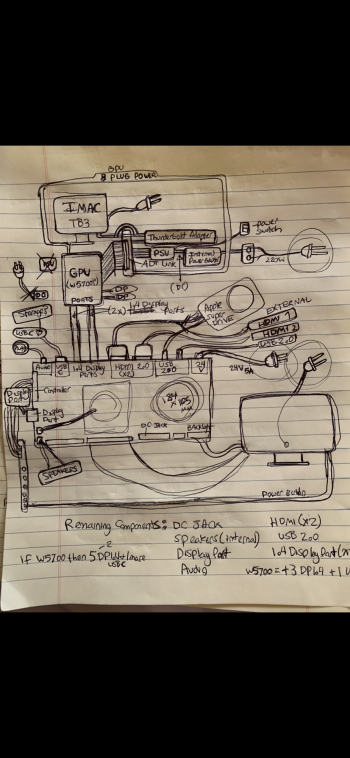 GPU
8 PLUG POWER
IMAC
TB3
Power
Switch
Thunderbolt Adapter
PSU
Internal
ADT Link
220W
GPU
(W5700)
PORTS
DP
DP
(2x) 1.4 Display Ports
Apple
Super
DRIVE
EXTERNAL
HDMI 1
HDMI 2
USB 2.0
SPEAKERS
USB C
Audio
USB
C
1.4 Display
Ports
HDMI
(x2)
2.0
USB
2.0
24V
5A
Display
Port
Controller
Display
Port
DC Jack
Backlight
SPEAKERS
Power Button
Remaining Components: DC JACK
HDMI (x2)
Speakers (internal)
USB 2.0
if W5700 then 5 DP 1.4 + 1 more
USBC
Display Port
1.4 Display Port
Audio
W5700 = +3 DP 1.4 + 1